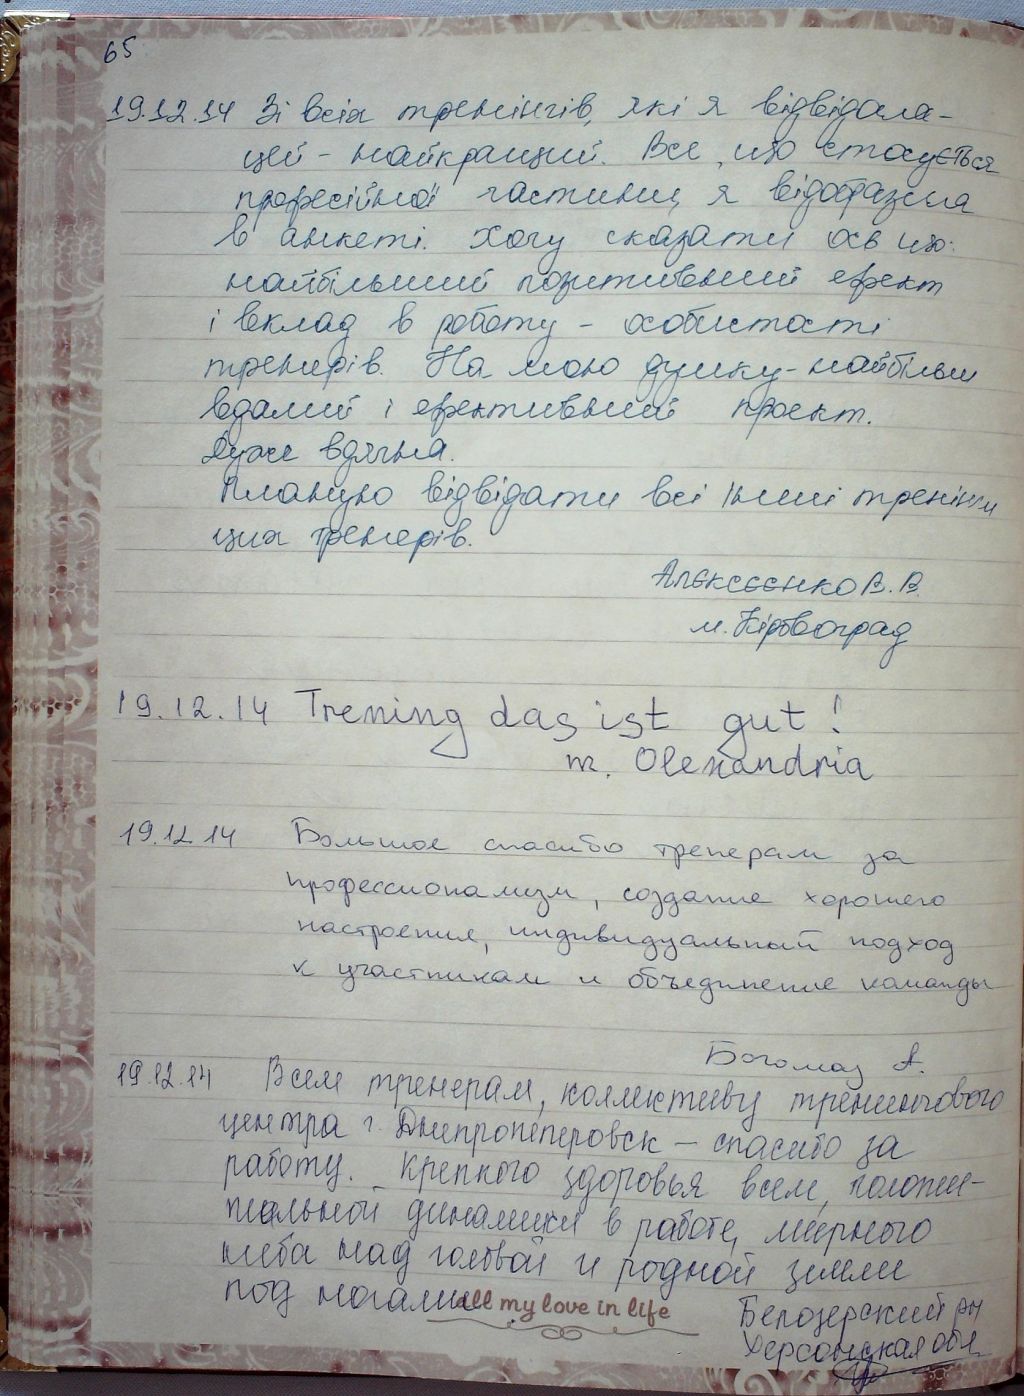 65
19.12.14 Зі всіх тренінгів, які я відвідала -
цей - найкращий. Все, що стосується
професійної частини, я відобразила
в анкеті. Хочу сказати ось що:
найбільший позитивний ефект
і вклад в роботу - особистості
тренерів. На мою думку - найбільш
вдалий і ефективний проект.
Дуже вдячна.
Планую відвідати всі інші тренінги
цих тренерів.
Алєксєєнко В. В.
м. Кіровоград
19.12.14 Trening das ist gut!
m. Olexandria
19.12.14 Большое спасибо тренерам за
профессионализм, создание хорошего
настроения, индивидуальный подход
к участникам и объединение команды
Богомаз А.
19.12.14 Всем тренерам, коллективу тренингового
центра г. Днепропетровск - спасибо за
работу. Крепкого здоровья всем, положи-
тельной динамики в работе, мирного
неба над головой и родной земли
под ногами
all my love in life
Белозерский рн
Херсонская обл.